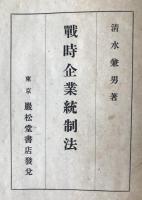 清水兼男著
戰時企業統制法
東京 巖松堂書店發兌